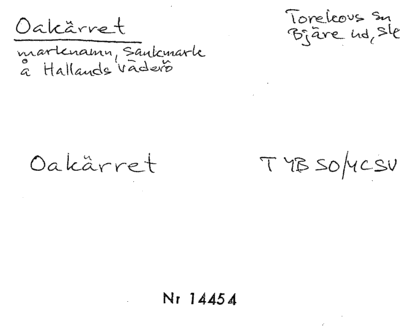 Oakärret
marknamn, sankmark
å Hallands Väderö
Torekovs sn
Bjäre hd, Sk
Oakärret
T YB SO/YCSV
Nr 14454